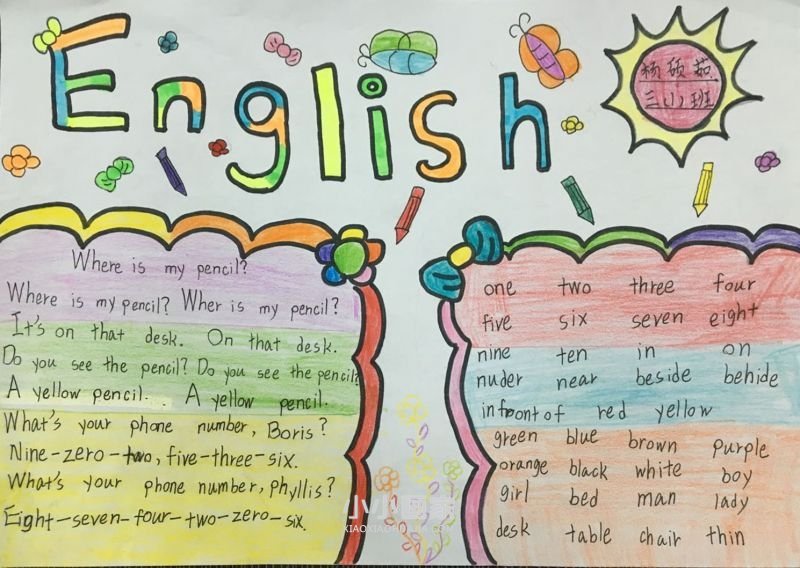 English
杨硕茹
三(1)班
Where is my pencil?
Where is my pencil? Wher is my pencil?
It's on that desk. On that desk.
Do you see the pencil? Do you see the pencil?
A yellow pencil. . A yellow pencil.
What's your phone number, Boris?
Nine-zero-two, five-three-six.
What's your phone number, phyllis?
Eight-seven-four-two-zero-six.
one two three four
five six seven eight
nine ten in on
nuder near beside behide
infrontof red yellow
green blue brown purple
orange black white boy
girl bed man lady
desk table chair thin